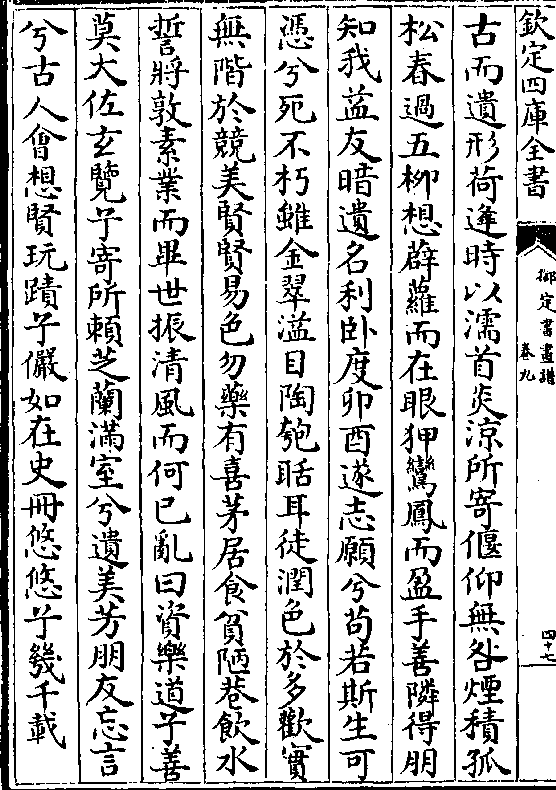 欽定四庫全書
御定書畫譜
卷九
四十七
古而遺形荷逢時以濡首炎涼所寄偃仰無咎煙積孤
松春過五柳想薜蘿而在眼狎鸞鳳而盈手善隣得朋
知我益友暗遺名利卧度卯酉遂志願兮苟若斯生可
憑兮死不朽雖金翠溢目陶匏聒耳徒潤色於多歡實
無階於競美賢賢易色勿藥有喜茅居食貧陋巷飲水
誓將敦素業而畢世振清風而何已亂曰資樂道兮善
莫大佐玄覽兮寄所賴芝蘭滿室兮遺美芳朋友忘言
兮古人㑹想賢玩蹟兮儼如在史冊悠悠兮幾千載